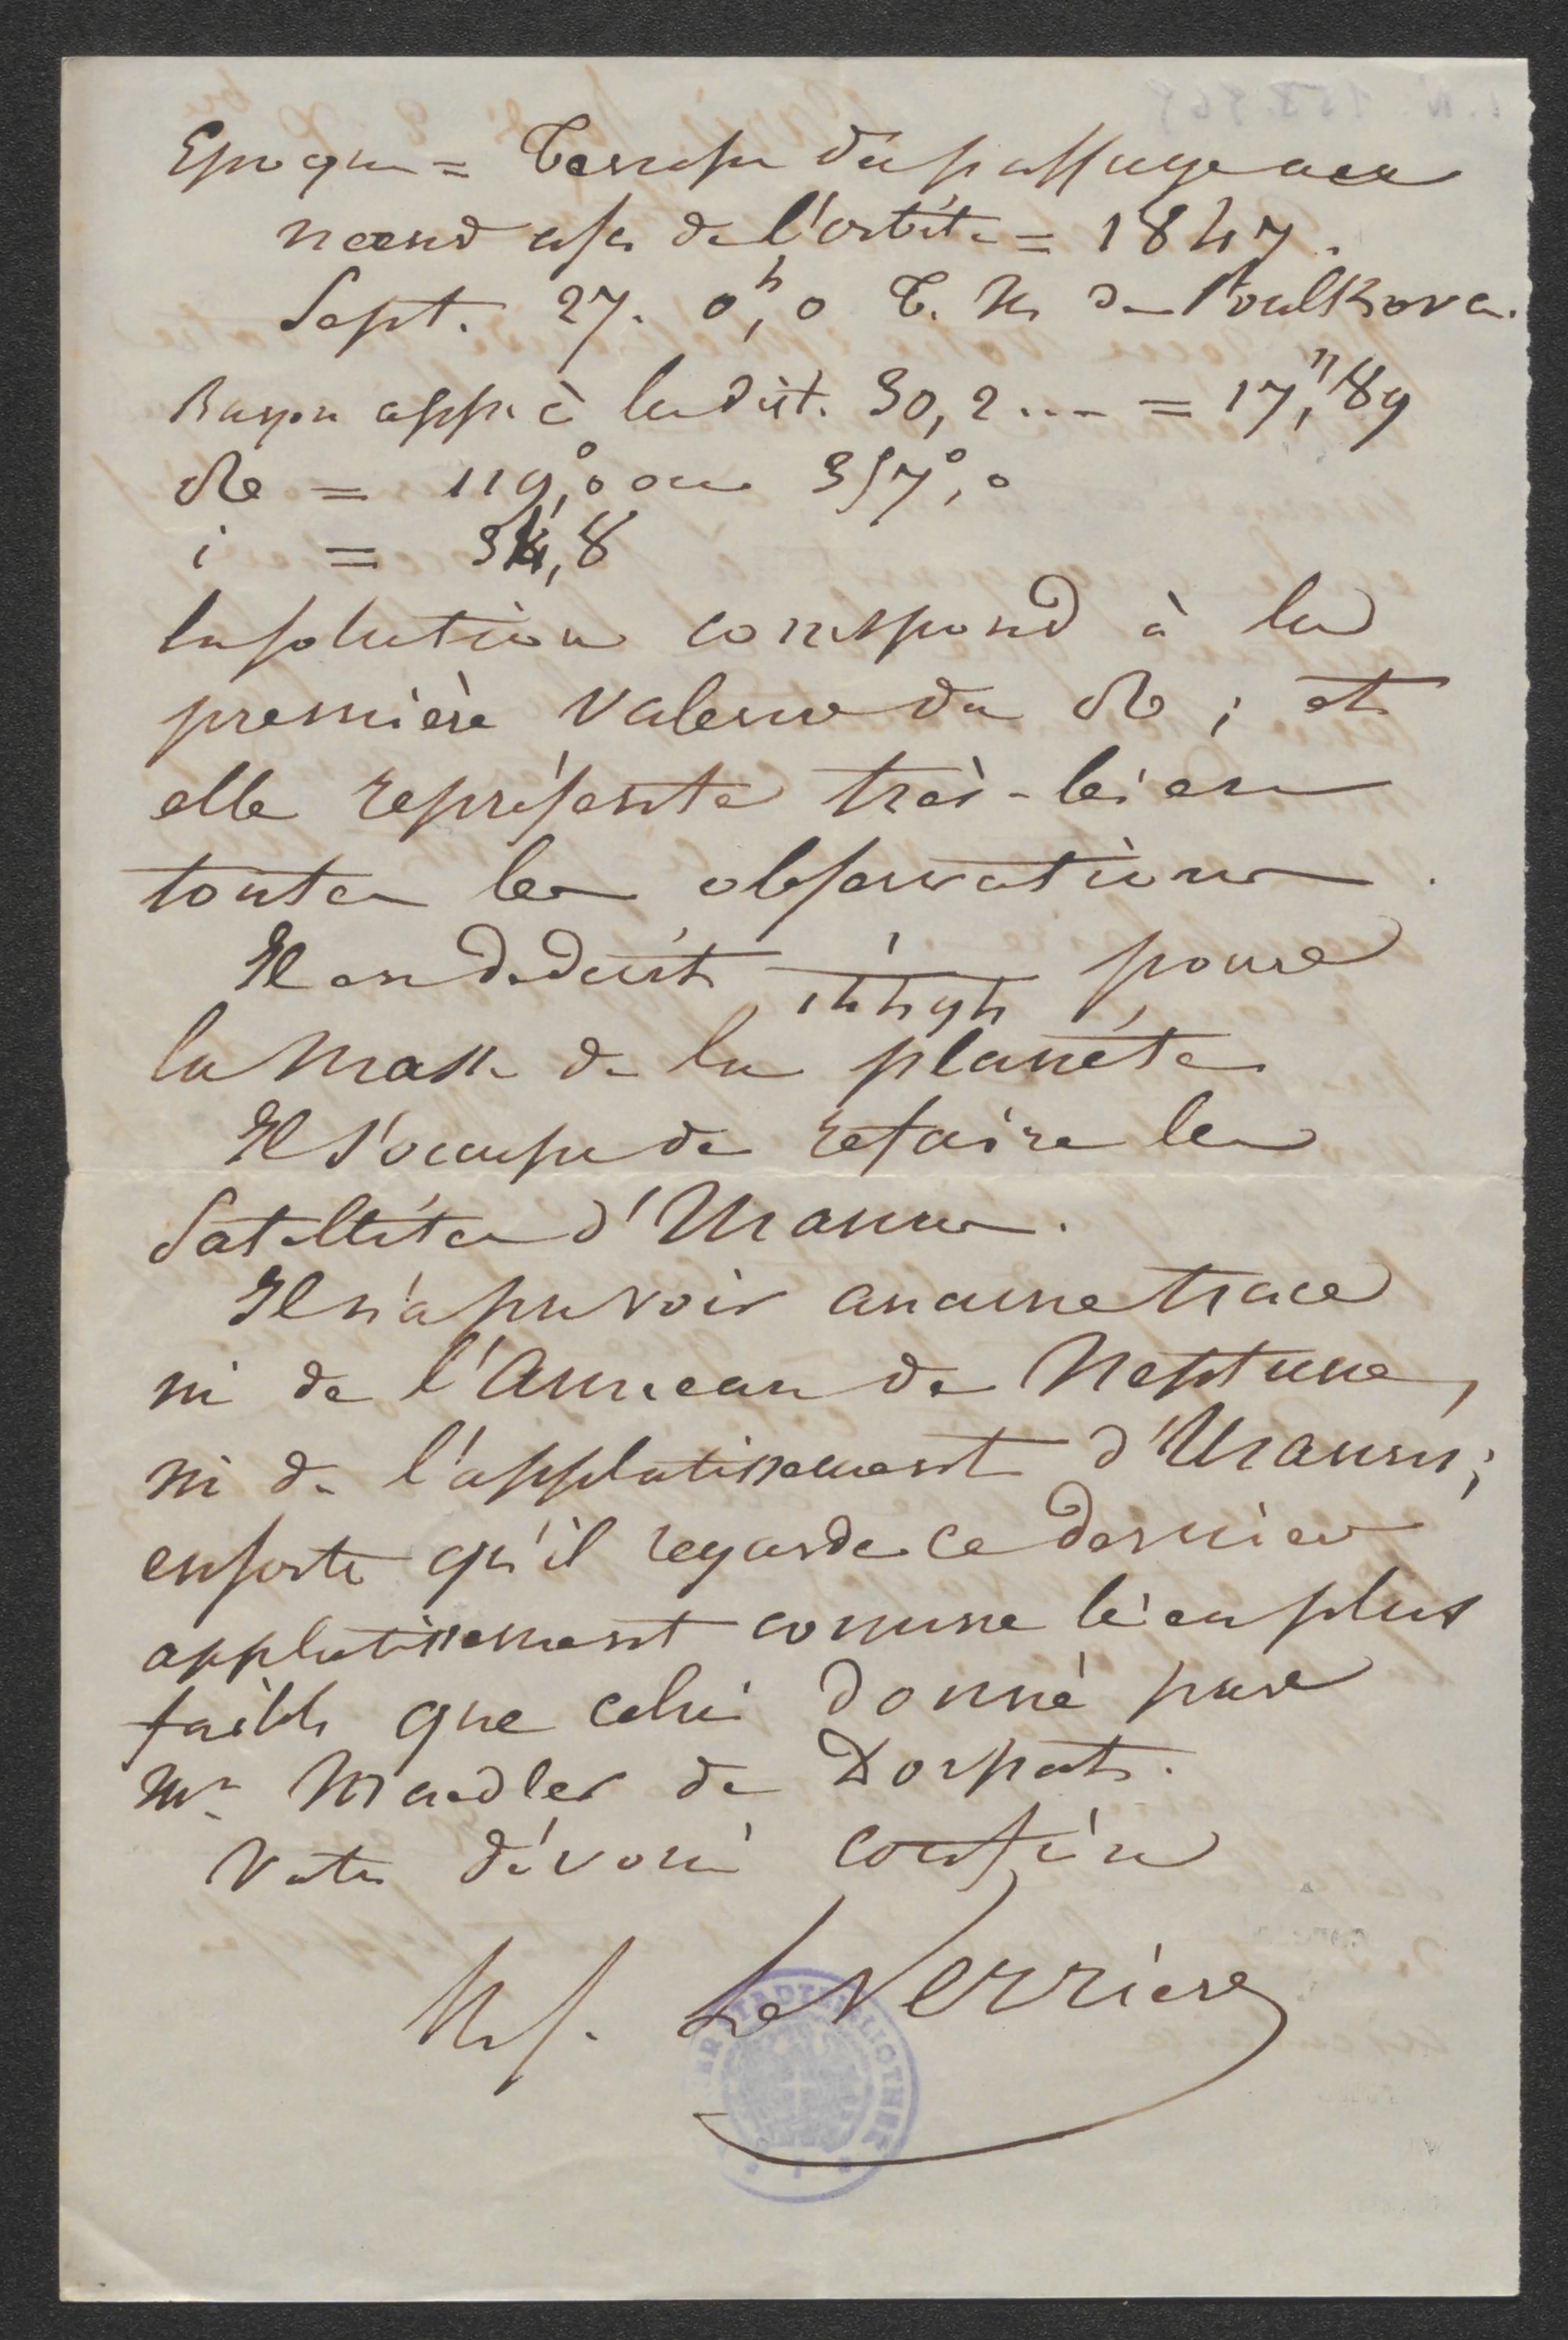 Epoque = Temps du passage au
noeud asc de l'orbite = 1847.
Sept. 27. 0h,0 T. M de Poulkova.
Rayon app. à la dist. 30,2 .... = 17,"89
☊ = 119°,0 ou 357°,0
i = 34,8
la solution correspond à la
première valeur du ☊ ; et
elle représente très-bien
toutes les observations.
Il en déduit 1/14494 pour
la masse de la planète
Il s'occupe de refaire les
Satellites d'Uranus.
Il n'a pu voir aucune trace
ni de l'Anneau de Neptune,
ni de l'applatissement d'Uranus;
ensorte qu'il regarde ce dernier
applatissement comme bien plus
faible que celui donné par
Mr Maedler de Dorpat.
Votre dévoué confrère
LeVerrier